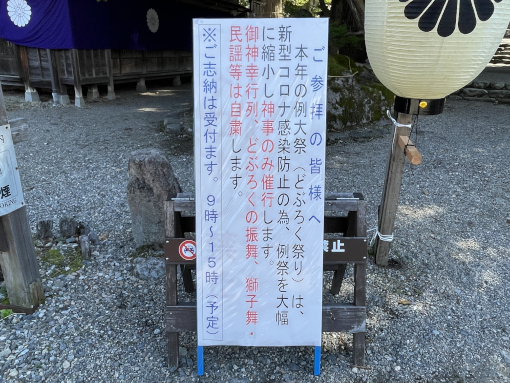 ご参拝の皆様へ
本年の例大祭（どぶろく祭り）は、
新型コロナ感染防止の為、例祭を大幅
に縮小し神事のみ催行します。
御神幸行列、どぶろくの振舞、獅子舞・
民謡等は自粛します。
※ご志納は受付ます。9時～15時（予定）
禁止
煙